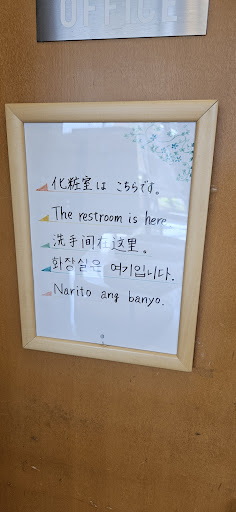 OFFICE
化粧室は こちらです。
The restroom is here
洗手间在这里。
화장실은 여기입니다.
Narito ang banyo.